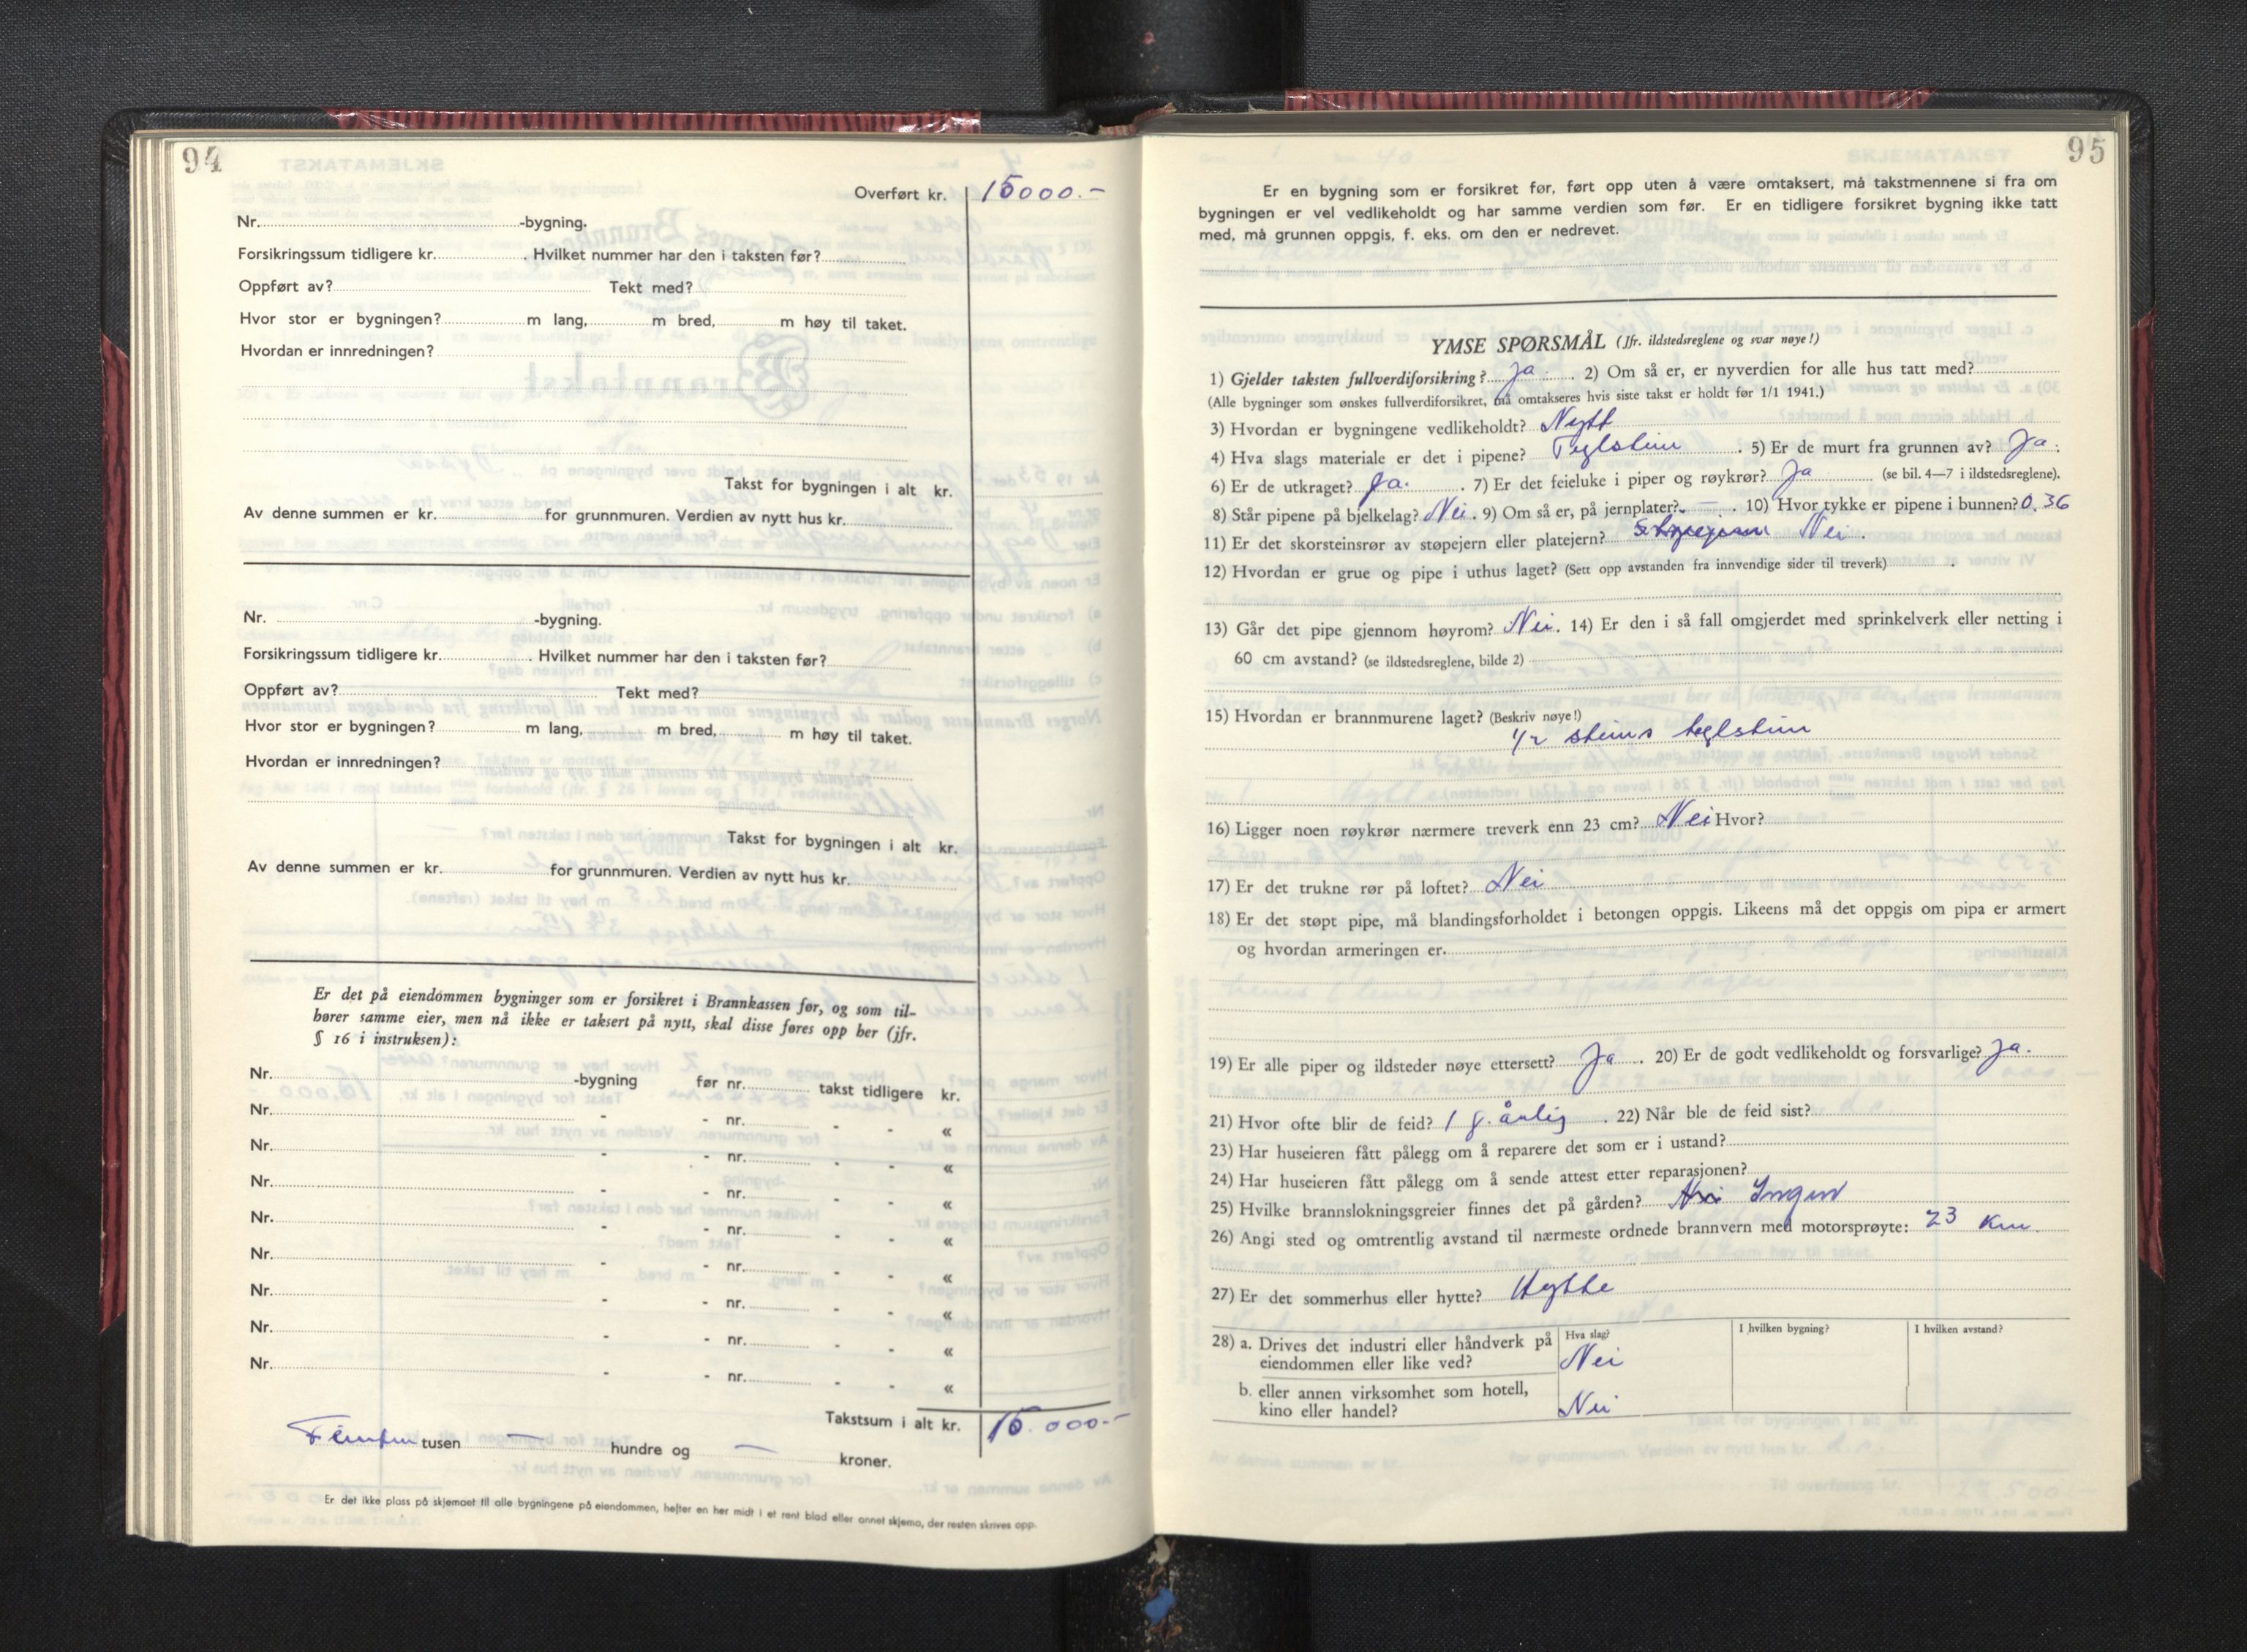 94
Overført kr. 15000.-
Nr. -bygning.
Forsikringssum tidligere kr. . Hvilket nummer har den i taksten før?
Oppført av? Tekt med?
Hvor stor er bygningen? m lang, m bred, m høy til taket.
Hvordan er innredningen?
Takst for bygningen i alt kr.
Av denne summen er kr. for grunnmuren. Verdien av nytt hus kr.
Nr. -bygning.
Forsikringssum tidligere kr. . Hvilket nummer har den i taksten før?
Oppført av? Tekt med?
Hvor stor er bygningen? m lang, m bred, m høy til taket.
Hvordan er innredningen?
Takst for bygningen i alt kr.
Av denne summen er kr. for grunnmuren. Verdien av nytt hus kr.
Er det på eiendommen bygninger som er forsikret i Brannkassen før, og som til-
hører samme eier, men nå ikke er taksert på nytt, skal disse føres opp her (jfr.
§ 16 i instruksen):
Nr. -bygning før nr. takst tidligere kr.
Nr. - - nr. - - «
Nr. - - nr. - - «
Nr. - - nr. - - «
Nr. - - nr. - - «
Nr. - - nr. - - «
Nr. - - nr. - - «
Nr. - - nr. - - «
Nr. - - nr. - - «
Takstsum i alt kr. 15.000.-
Femten tusen — hundre og — kroner.
Er det ikke plass på skjemaet til alle bygningene på eiendommen, hefter en her midt i et rent blad eller annet skjema, der resten skrives opp.
95
Er en bygning som er forsikret før, ført opp uten å være omtaksert, må takstmennene si fra om
bygningen er vel vedlikeholdt og har samme verdien som før. Er en tidligere forsikret bygning ikke tatt
med, må grunnen oppgis, f. eks. om den er nedrevet.
YMSE SPØRSMÅL (Jfr. ildstedsreglene og svar nøye!)
1) Gjelder taksten fullverdiforsikring? Ja. 2) Om så er, er nyverdien for alle hus tatt med?
(Alle bygninger som ønskes fullverdiforsikret, må omtakseres hvis siste takst er holdt før 1/1 1941.)
3) Hvordan er bygningene vedlikeholdt? Nytt
4) Hva slags materiale er det i pipene? Teglstein. 5) Er de murt fra grunnen av? Ja.
6) Er de utkraget? Ja. 7) Er det feieluke i piper og røykrør? Ja (se bil. 4—7 i ildstedsreglene).
8) Står pipene på bjelkelag? Nei. 9) Om så er, på jernplater? —. 10) Hvor tykke er pipene i bunnen? 0.36
11) Er det skorsteinsrør av støpejern eller platejern? Nei.
12) Hvordan er grue og pipe i uthus laget? (Sett opp avstanden fra innvendige sider til treverk) .
13) Går det pipe gjennom høyrom? Nei. 14) Er den i så fall omgjerdet med sprinkelverk eller netting i
60 cm avstand? (se ildstedsreglene, bilde 2)
15) Hvordan er brannmurene laget? (Beskriv nøye!)
1/2 steins teglstein
16) Ligger noen røykrør nærmere treverk enn 23 cm? Nei Hvor?
17) Er det trukne rør på loftet? Nei
18) Er det støpt pipe, må blandingsforholdet i betongen oppgis. Likeens må det oppgis om pipa er armert
og hvordan armeringen er.
19) Er alle piper og ildsteder nøye ettersett? Ja. 20) Er de godt vedlikeholdt og forsvarlige? Ja.
21) Hvor ofte blir de feid? 1 g. årlig. 22) Når ble de feid sist?
23) Har huseieren fått pålegg om å reparere det som er i ustand?
24) Har huseieren fått pålegg om å sende attest etter reparasjonen?
25) Hvilke brannslokningsgreier finnes det på gården? Nei Ingen
26) Angi sted og omtrentlig avstand til nærmeste ordnede brannvern med motorsprøyte: 23 km.
27) Er det sommerhus eller hytte? Hytte
28) a. Drives det industri eller håndverk på eiendommen eller like ved? Hva slag? Nei I hvilken bygning? I hvilken avstand?
b. eller annen virksomhet som hotell, kino eller handel? Nei